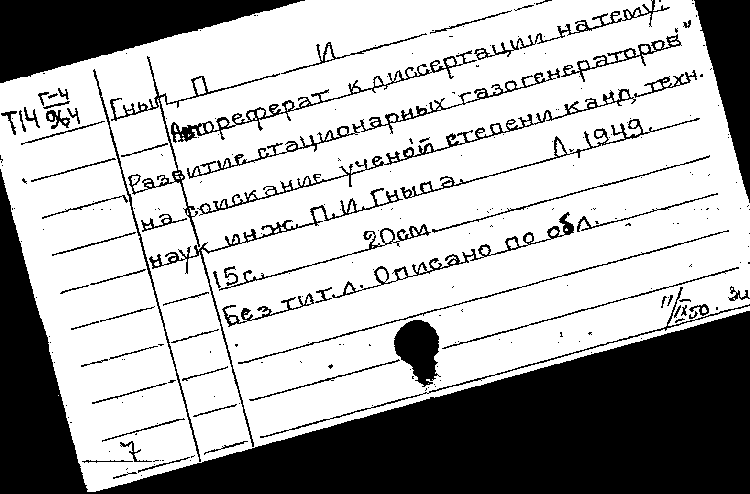 Т14 Г-4
964
Гнып, П И
Автореферат к диссертации на тему:
„Развитие стационарных газогенераторов"
на соискание ученой степени канд. техн.
наук инж. П.И. Гныпа. Л., 1949.
15с. 20см.
Без тит. л. Описано по обл.
11/IX 50. Зи
7